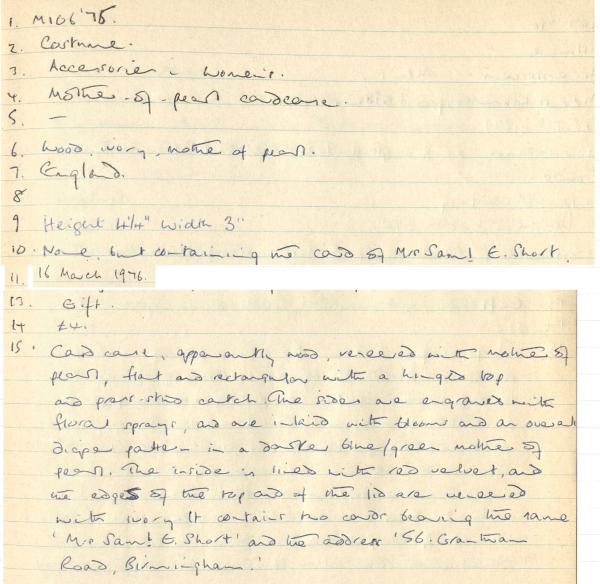 1. M106'75.
2. Costume.
3. Accessories - women's.
4. Mother-of-pearl cardcase.
5. —
6. Wood, ivory, mother of pearl.
7. England.
8
9 Height 4¼" Width 3"
10. None, but containing the card of Mrs Saml E. Short.
11. 16 March 1976.
13. Gift.
14 £4.
15. Card case, apparently wood, veneered with mother of
pearl, flat and rectangular with a hinged top
and press-stud catch. The sides are engraved with
floral sprays, and are inlaid with blooms and an overall
diaper pattern in a darker blue/green mother of
pearl. The inside is lined with red velvet, and
the edges of the top and of the lid are veneered
with ivory It contains two cards bearing the name
'Mrs Saml E. Short' and the address '56. Grantham
Road, Birmingham.'